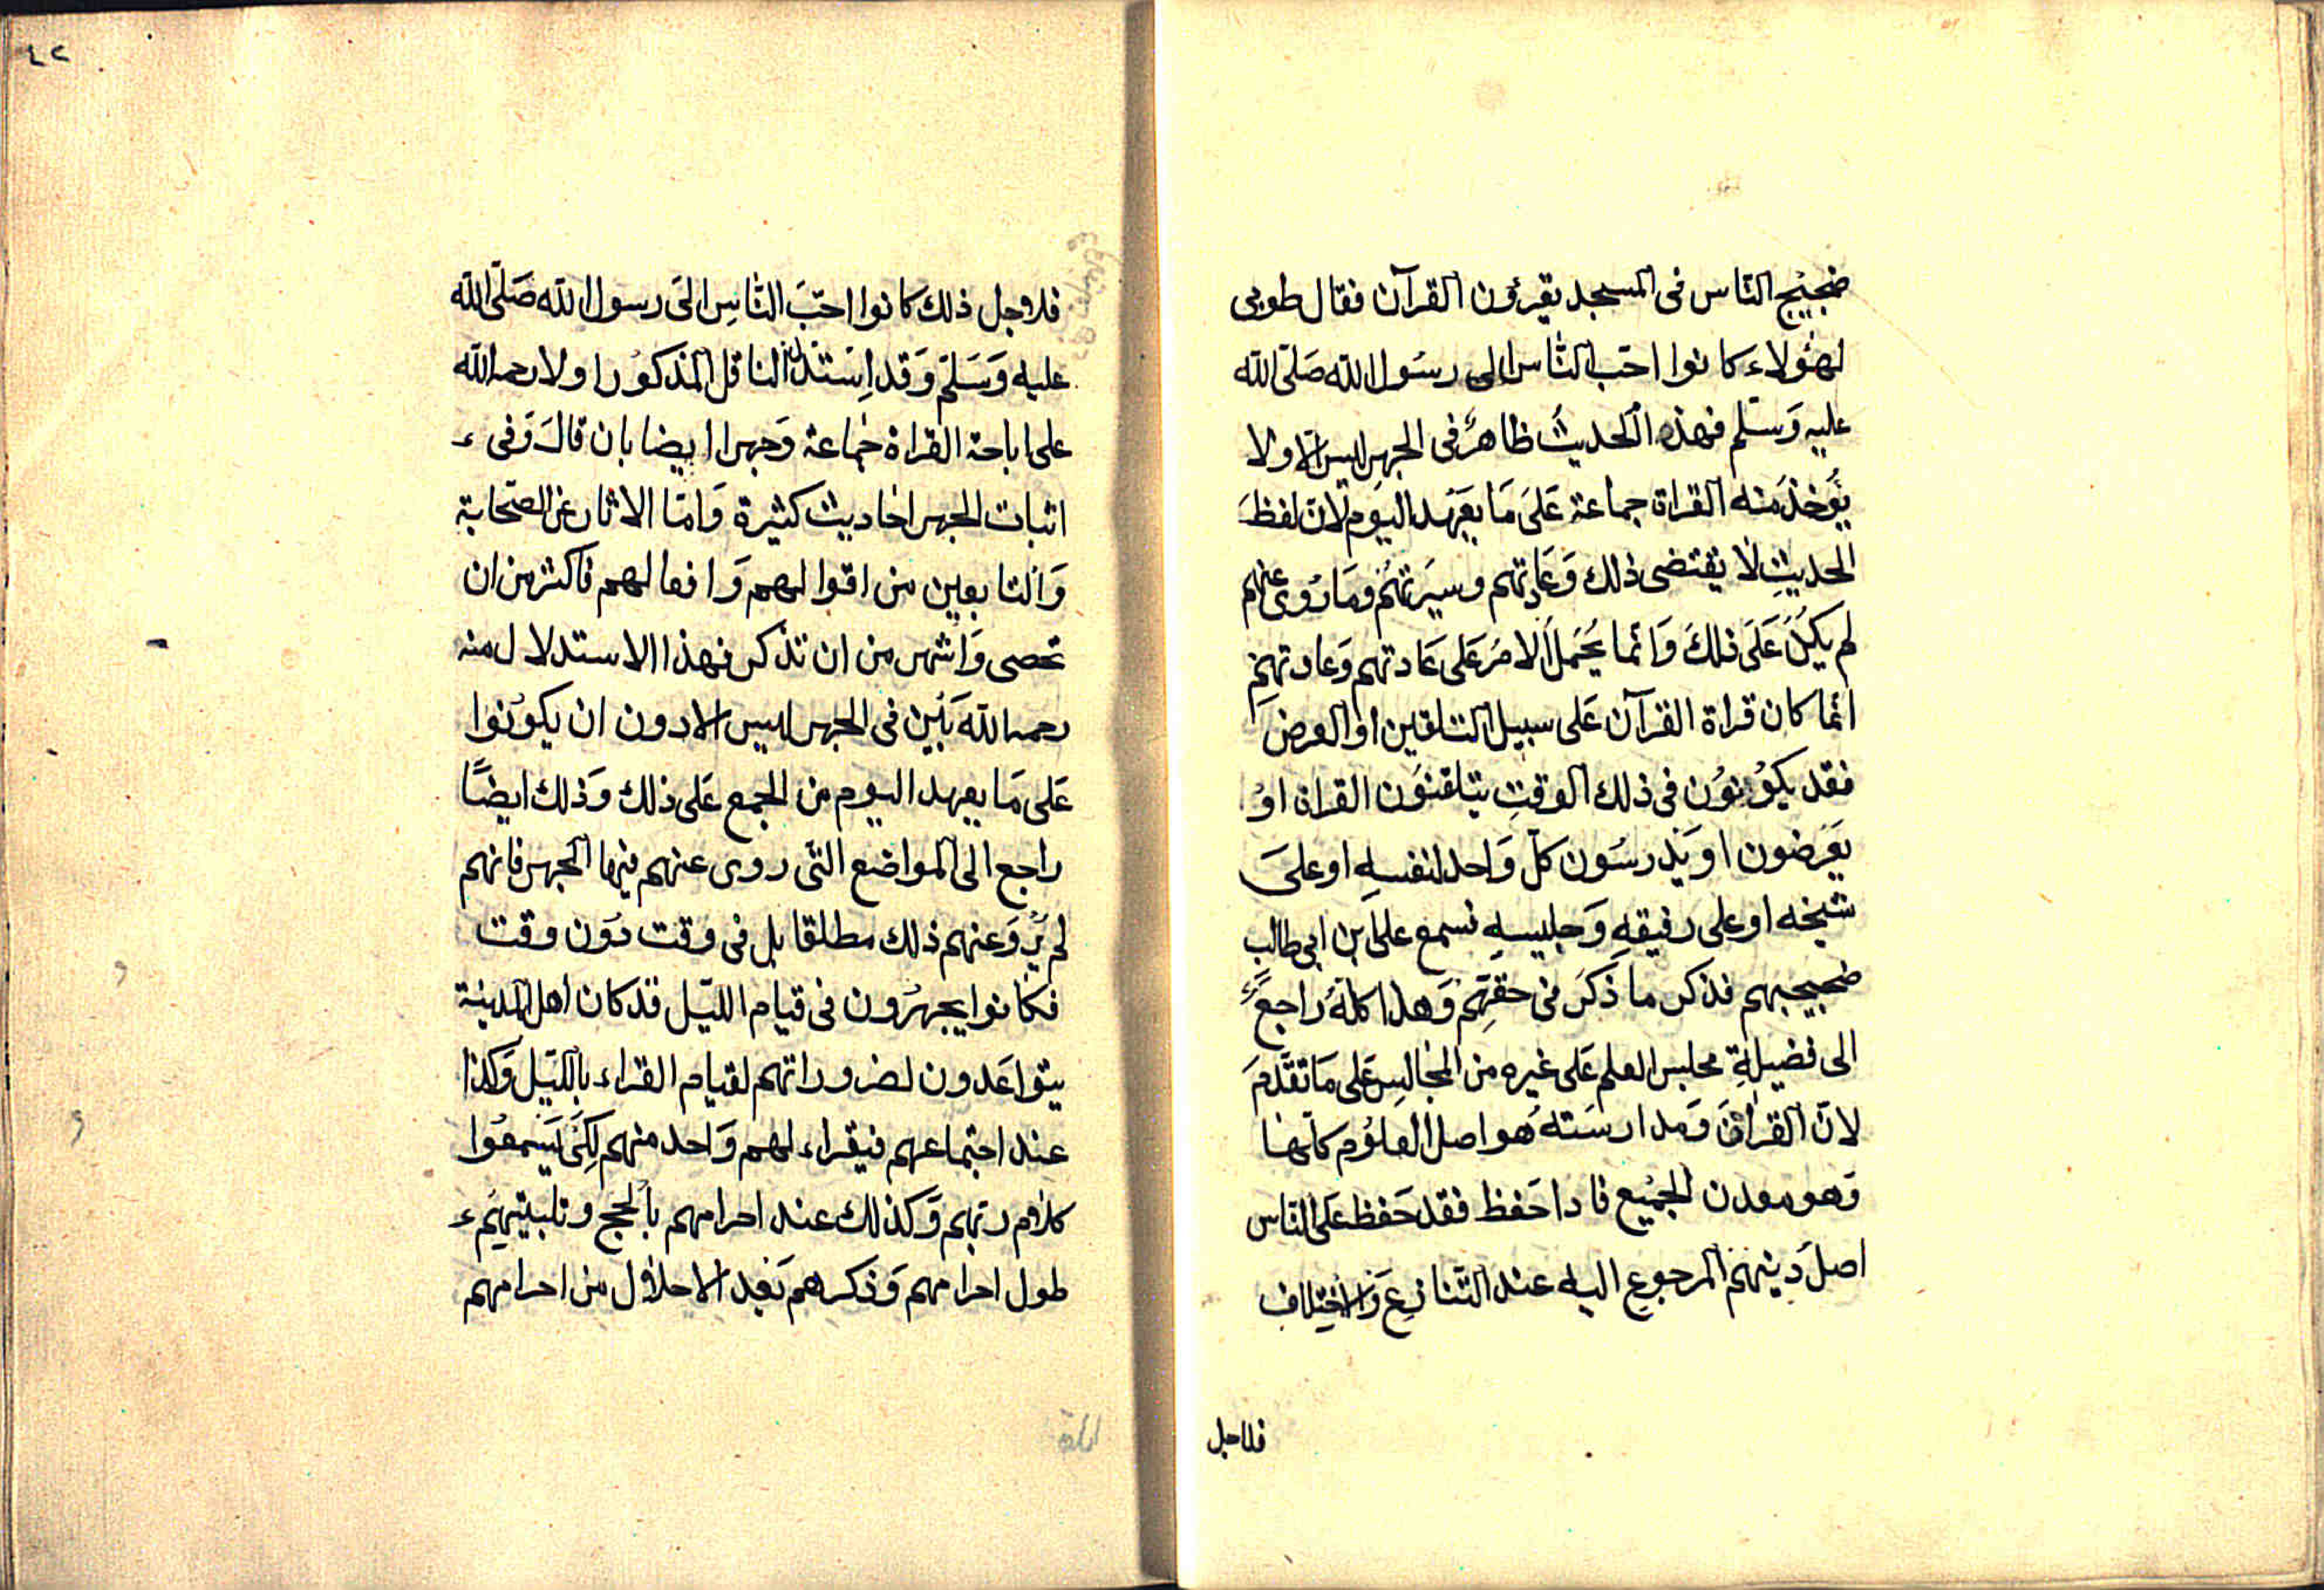 ضجيج الناس فى المسجد يقرؤن القرآن فقال طوبى
لهؤلاء كانوا احب الناس الى رسول الله صلى الله
عليه وسلم فهذه الحديث ظاهر فى الجهر ليس الا ولا
يؤخذ منه القراة جماعة على ما يعهد اليوم لان لفظ
الحديث لا يقتضى ذلك وعادتهم وسيرتهم وما روى عنهم
لم يكن على ذلك وانما يحمل الامر على عادتهم وعادتهم
انما كان قراة القرآن على سبيل التلقين او العرض
فقد يكونون فى ذلك الوقت يتلقنون القراة او
يعرضون او يدرسون كل واحد لنفسه او على
شيخه او على رفيقه وجليسه فسمع على بن ابى طالب
ضجيجهم فذكر ما ذكر فى حقهم وهذا كله راجع
الى فضيلة مجلس العلم على غيره من المجالس على ما تقدم
لان القرآن ومدارسته هو اصل العلوم كلها
وهو معدن الجميع فاذا حفظ فقد حفظ على الناس
اصل دينهم المرجوع اليه عند التنازع والاختلاف
فلاجل
٤٢
فلاجل ذلك كانوا احب الناس الى رسول الله صلى الله
عليه وسلم وقد استدل الناقل المذكور اولا رحمه الله
على اباحة القراة جماعة وجهرا ايضا بان قال وفى
اثبات الجهر احاديث كثيرة واما الاثار عن الصحابة
والتابعين من اقوالهم وافعالهم فاكثر من ان
تحصى واشهر من ان تذكر فهذا الاستدلال منه
رحمه الله بين فى الجهر ليس الا دون ان يكونوا
على ما يعهد اليوم من الجمع على ذلك وذلك ايضًا
راجع الى المواضع التى روى عنهم فيها الجهر فانهم
لم يرو عنهم ذلك مطلقا بل فى وقت دون وقت
فكانوا يجهرون فى قيام الليل فقد كان اهل المدينة
يتواعدون لضروراتهم لقيام القراء بالليل وكذا
عند اجتماعهم فيقراء لهم واحد منهم لكى يسمعوا
كلام ربهم وكذلك عند احرامهم بالحج وتلبيتهم
طول احرامهم وذكرهم بعد الاحلال من احرامهم